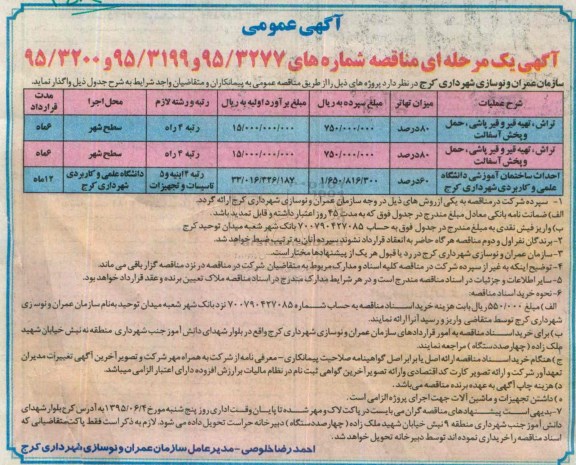 آگهی عمومی
آگهی یک مرحله ای مناقصه شماره های ۹۵/۳۲۷۷ و ۹۵/۳۱۹۹ و ۹۵/۳۲۰۰
سازمان عمران و نوسازی شهرداری کرج در نظر دارد پروژه های ذیل را از طریق مناقصه عمومی به پیمانکاران و متقاضیان واجد شرایط به شرح جدول ذیل واگذار نماید.
شرح عملیات میزان تهاتر مبلغ سپرده به ریال مبلغ برآورد اولیه به ریال رتبه و رشته لازم محل اجرا مدت قرارداد
تراش، تهیه قیر و قیر پاشی، حمل و پخش آسفالت ۸۰درصد ۷۵۰/۰۰۰/۰۰۰ ۱۵/۰۰۰/۰۰۰/۰۰۰ رتبه ۴ راه سطح شهر ۶ماه
تراش، تهیه قیر و قیر پاشی، حمل و پخش آسفالت ۸۰درصد ۷۵۰/۰۰۰/۰۰۰ ۱۵/۰۰۰/۰۰۰/۰۰۰ رتبه ۴ راه سطح شهر ۶ماه
احداث ساختمان آموزشی دانشگاه علمی و کاربردی شهرداری کرج ۶۰درصد ۱/۶۵۰/۸۱۶/۳۰۰ ۳۳/۰۱۶/۳۲۶/۱۸۷ رتبه ۴ ابنیه و ۵ تاسیسات و تجهیزات دانشگاه علمی و کاربردی شهرداری کرج ۱۲ماه
۱- سپرده شرکت در مناقصه به یکی از روش های ذیل در وجه سازمان عمران و نوسازی شهرداری کرج ارائه گردد.
الف) ضمانت نامه بانکی معادل مبلغ مندرج در جدول فوق که به مدت ۴۵ روز اعتبار داشته و قابل تمدید باشد.
ب) واریز فیش نقدی به مبلغ مندرج در جدول فوق به حساب ۷۰۰۷۹۰۴۲۷۰۸۵ بانک شهر شعبه میدان توحید کرج
۲- برندگان نفر اول و دوم مناقصه هر گاه حاضر به انعقاد قرارداد نشوند سپرده آنان به ترتیب ضبط خواهد شد.
۳- سازمان عمران و نوسازی شهرداری کرج در رد یا قبول هر یک از پیشنهادها مختار است.
۴- توضیح اینکه به غیر از سپرده شرکت در مناقصه کلیه اسناد و مدارک مربوط به متقاضیان شرکت در مناقصه در نزد مناقصه گزار باقی می ماند.
۵- سایر اطلاعات و جزئیات در اسناد مناقصه مندرج است و در هر شرایط مدارک مندرج در اسناد مناقصه ملاک تعیین برنده و عقد قرارداد خواهد بود.
۶- نحوه خرید اسناد مناقصه:
الف) مبلغ ۵۵۰/۰۰۰ ریال بابت هزینه خرید اسناد مناقصه به حساب شماره ۷۰۰۷۹۰۴۲۷۰۸۵ نزد بانک شهر شعبه میدان توحید بنام سازمان عمران و نوسازی شهرداری کرج توسط متقاضی واریز و رسید آنرا ارائه نمایند.
ب) برای خرید اسناد مناقصه به امور قراردادهای سازمان عمران و نوسازی شهرداری کرج واقع در بلوار شهدای دانش آموز جنب شهرداری منطقه نه نبش خیابان شهید ملک زاده (چهارصد دستگاه) مراجعه نمایند.
ج) هنگام خرید اسناد مناقصه ارائه اصل یا برابر اصل گواهینامه صلاحیت پیمانکاری - معرفی نامه از شرکت به همراه مهر شرکت و تصویر آخرین آگهی تغییرات مدیران تعهدآور شرکت و ارائه تصویر کارت کد اقتصادی و ارائه تصویر آخرین گواهی ثبت نام در نظام مالیات بر ارزش افزوده دارای اعتبار الزامی میباشد.
د) هزینه چاپ آگهی به عهده برنده مناقصه می باشد.
ه) داشتن تجهیزات و ماشین آلات جهت اجرای پروژه الزامی است.
۷- بدیهی است پیشنهادهای مناقصه گران می بایست در پاکت لاک و مهر شده تا پایان وقت اداری روز پنج شنبه مورخ ۱۳۹۵/۰۶/۰۴ به آدرس کرج بلوار شهدای
دانش آموز جنب شهرداری منطقه ۹ نبش خیابان شهید ملک زاده (چهارصد دستگاه) دبیرخانه حراست تحویل داده می شود. لازم به ذکر است فقط پاکت متقاضیانی که
اسناد مناقصه را خریداری نموده اند توسط دبیرخانه تحویل خواهد شد.
احمدرضا خلوصی - مدیر عامل سازمان عمران و نوسازی شهرداری کرج